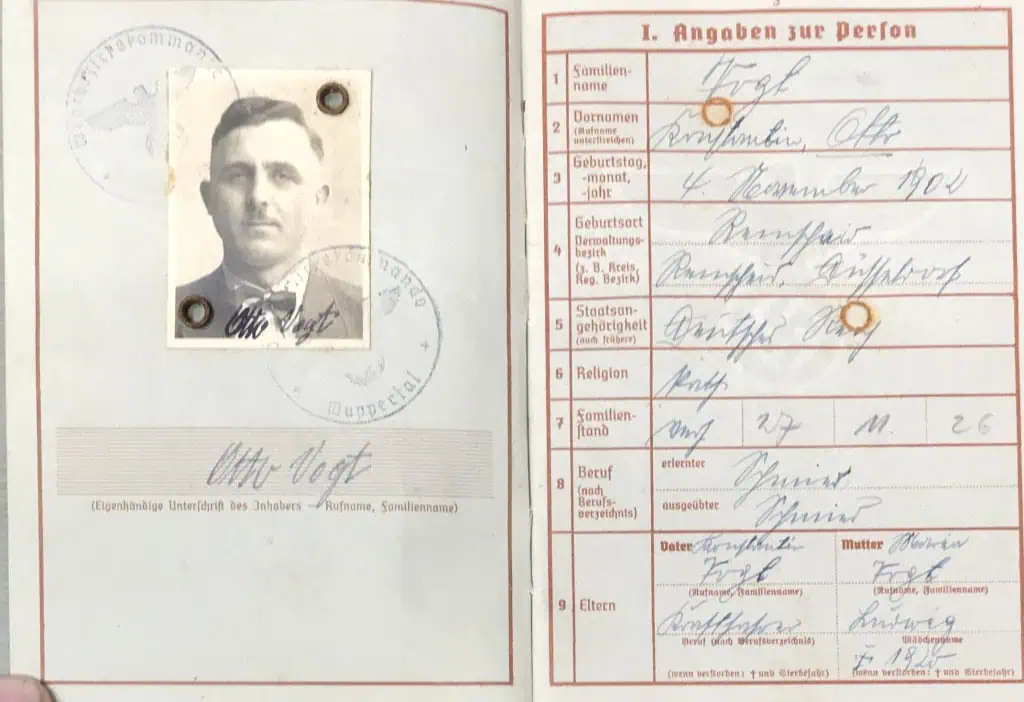 Wehrbezirkskommando
Wuppertal
Otto Vogt
Otto Vogt
(Eigenhändige Unterschrift des Inhabers — Rufname, Familienname)
3
I. Angaben zur Person
1 Familien-
name
Vogt
2 Vornamen
(Rufname
unterstreichen)
Konstantin, Otto
3 Geburtstag,
-monat,
-jahr
4. November 1902
4 Geburtsort
Verwaltungs-
bezirk
(z. B. Kreis,
Reg. Bezirk)
Remscheid
Remscheid, Düsseldorf
5 Staatsan-
gehörigkeit
(auch frühere)
Deutsches Reich
6 Religion
kath.
7 Familien-
stand
verh 27 11. 26
8 Beruf
(nach
Berufs-
verzeichnis)
erlernter Schmied
ausgeübter Schmied
9 Eltern
Vater Konstantin
Vogt
(Rufname, Familienname)
Kraftfahrer
Beruf (nach Berufsverzeichnis)
(wenn verstorben: † und Sterbejahr)
Mutter Maria
Vogt
(Rufname, Familienname)
Ludwig
Mädchenname
(wenn verstorben: † und Sterbejahr)